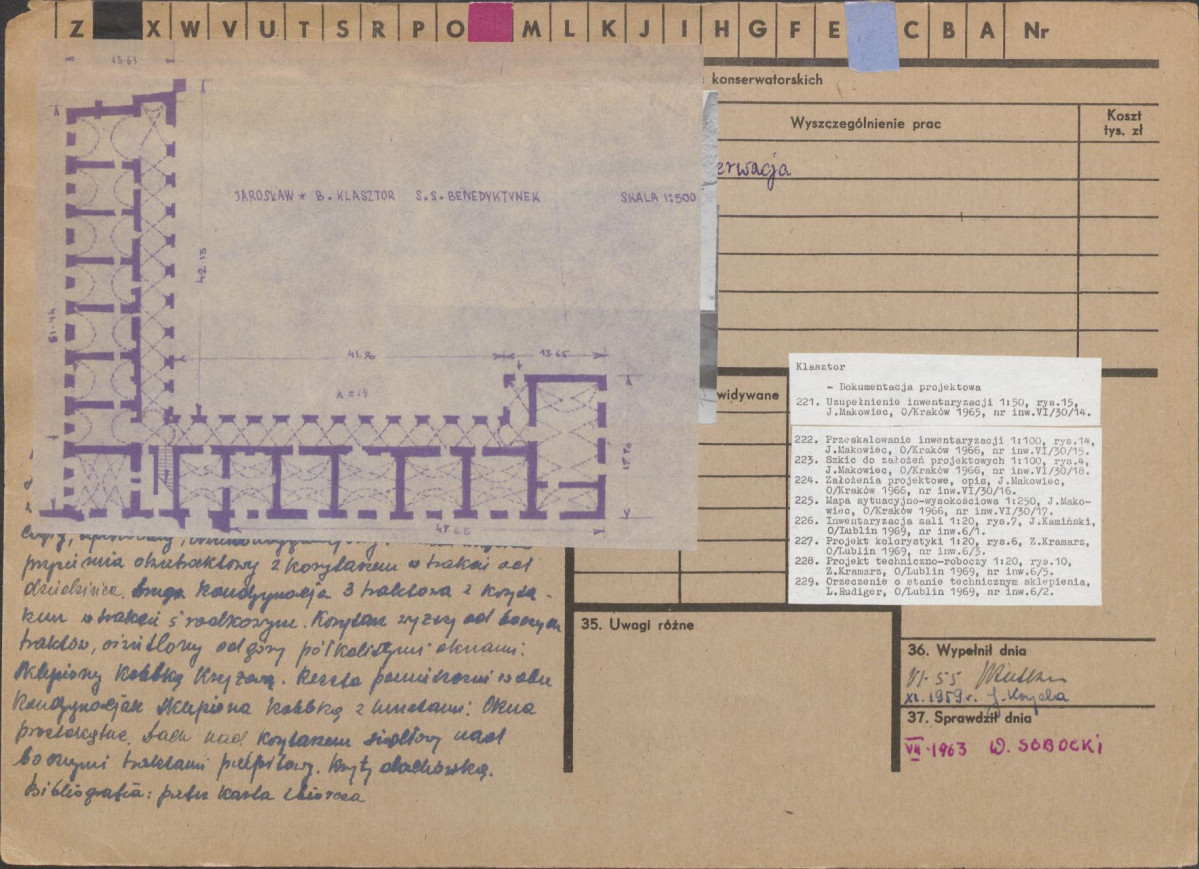 Z X W V U T S R P O M L K J I H G F E C B A Nr
konserwatorskich
Wyszczególnienie prac
Koszt
tys. zł
erwacja
13.61
JAROSŁAW * B. KLASZTOR S.S. BENEDYKTYNEK SKALA 1:500
42.13
41.70
13.65
47.65
widywane
Klasztor
- Dokumentacja projektowa
221. Uzupełnienie inwentaryzacji 1:50, rys.15,
J.Makowiec, O/Kraków 1965, nr inw.VI/30/14.
222. Przeskalowanie inwentaryzacji 1:100, rys.14,
J.Makowiec, O/Kraków 1966, nr inw.VI/30/15.
223. Szkic do założeń projektowych 1:100, rys.4,
J.Makowiec, O/Kraków 1966, nr inw.VI/30/18.
224. Założenia projektowe, opis, J.Makowiec,
O/Kraków 1966, nr inw.VI/30/16.
225. Mapa sytuacyjno-wysokościowa 1:250, J.Mako-
wiec, O/Kraków 1966, nr inw.VI/30/17.
226. Inwentaryzacja sali 1:20, rys.7, J.Kamiński,
O/Lublin 1969, nr inw.6/1.
227. Projekt kolorystyki 1:20, rys.6, Z.Kramarz,
O/Lublin 1969, nr inw.6/3.
228. Projekt techniczno-roboczy 1:20, rys.10,
Z.Kramarz, O/Lublin 1969, nr inw.6/5.
229. Orzeczenie o stanie technicznym sklepienia,
L.Rudiger, O/Lublin 1969, nr inw.6/2.
przyziemia dwutraktowy z korytarzem w trakcie od
dziedzińca. Druga kondygnacja 3 traktowa z koryta-
rzem w trakcie środkowym. Korytarz wyższy od bocznych
traktów, oświetlony od góry półkolistymi oknami.
Sklepiony kolebką krzyżową. Reszta pomieszczeń w obu
kondygnacjach sklepiona kolebką z lunetami. Okna
prostokątne. Dach nad korytarzem siodłowy nad
bocznymi traktami pulpitowy. Kryty dachówką.
Bibliografia: patrz karta zbiorcza
35. Uwagi różne
36. Wypełnił dnia
VI-55
XI.1959r.
37. Sprawdził dnia
VII-1963 W. SOBOCKI